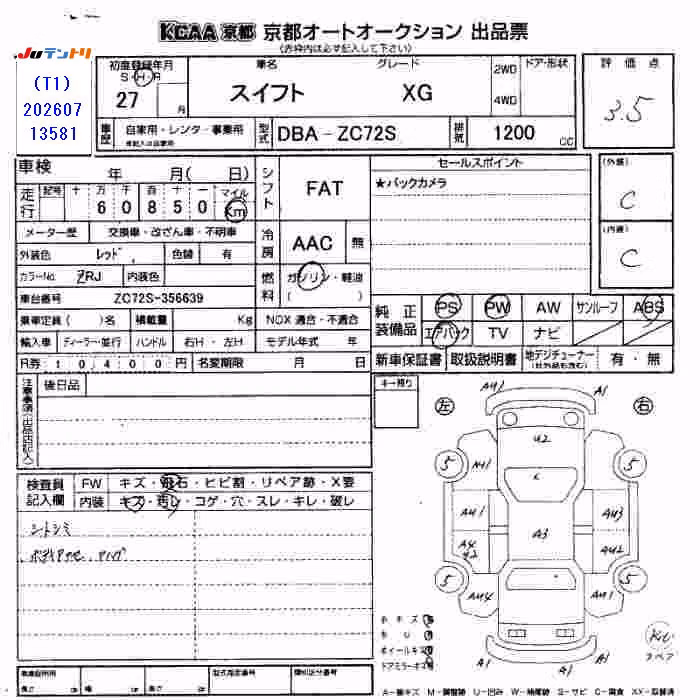 KCAA 京都 京都オートオークション 出品票
(赤枠内は必ず記入して下さい)
JUテントリ
(T1)
202607
13581
初度登録年月
S・H・R
27 月
車名
スイフト
グレード
XG
2WD
4WD
ドア・形状
評価点
3.5
車歴
自家用・レンタ・事業用
型式
DBA-ZC72S
排気
1200 CC
車検 年 月( 日)
走行
記号 十 万 千 百 十 一 マイル
6 0 8 5 0 Km
メーター歴 交換車・改ざん車・不明車
外装色 レッド 色替 有
カラーNo. ZRJ 内装色
車台番号 ZC72S-356639
乗車定員( )名 積載量 Kg NOX 適合・不適合
輸入車 ディーラー・並行 ハンドル 右H・左H モデル年式 年
R券 10400円 名変期限 月 日
シフト FAT
冷房 AAC 無
燃料 ガソリン・軽油
( )
セールスポイント
★バックカメラ
(外装)
C
(内装)
C
純正装備品
PS PW AW サンルーフ ABS
エアバック TV ナビ
新車保証書 取扱説明書 地デジチューナー 有・無
注意事項(出品店記入)
後日品
キー預り
左
右
検査員記入欄
FW キズ・飛石・ヒビ割・リペア跡・X要
内装 キズ・汚レ・コゲ・穴・スレ・キレ・破レ
シトシミ
AU1
A1
U2
5
AU1
5
AU1
A3
AU3
A4
U2
AU2
5
AU4
AU1
5
AU1
A1
小キズ
ホイールキズ
ドアミラーキズ
リペア
型式指定番号
類別区分番号
長さ cm 幅 cm 高さ cm